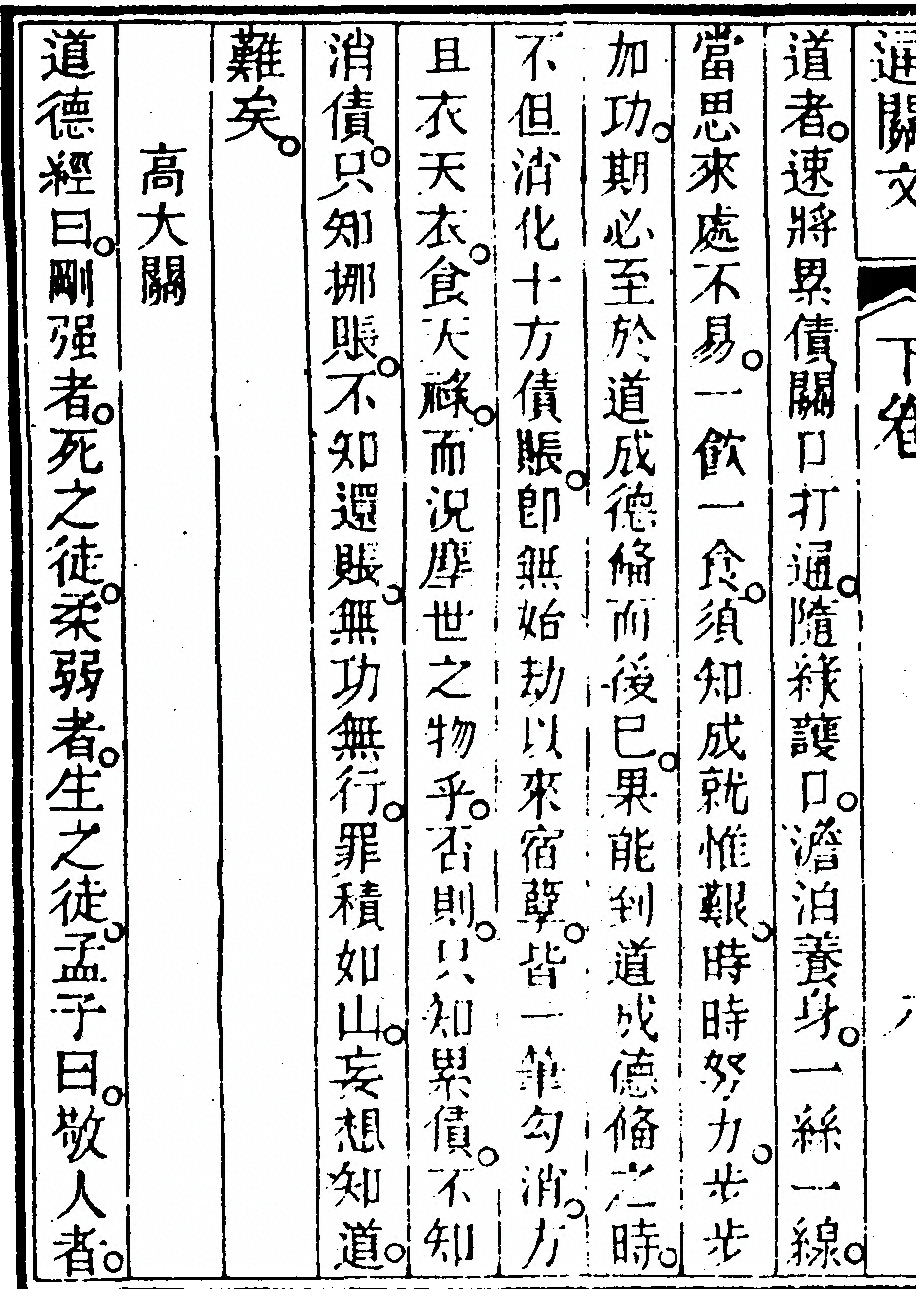 通關文 下卷
道者。速將累債關口打通。隨緣護口。澹泊養身。一絲一線。
當思來處不易。一飲一食。須知成就惟艱。時時努力。步步
加功。期必至於道成德俻而後已。果能到道成德俻之時。
不但消化十方債賬。卽無始劫以來宿孽。皆一筆勾消。方
且衣天衣。食天祿。而況塵世之物乎。否則。只知累債。不知
消債。只知挪賬。不知還賬。無功無行。罪積如山。妄想知道。
難矣。
高大關
道德經曰。剛强者。死之徒。柔弱者。生之徒。孟子曰。敬人者。